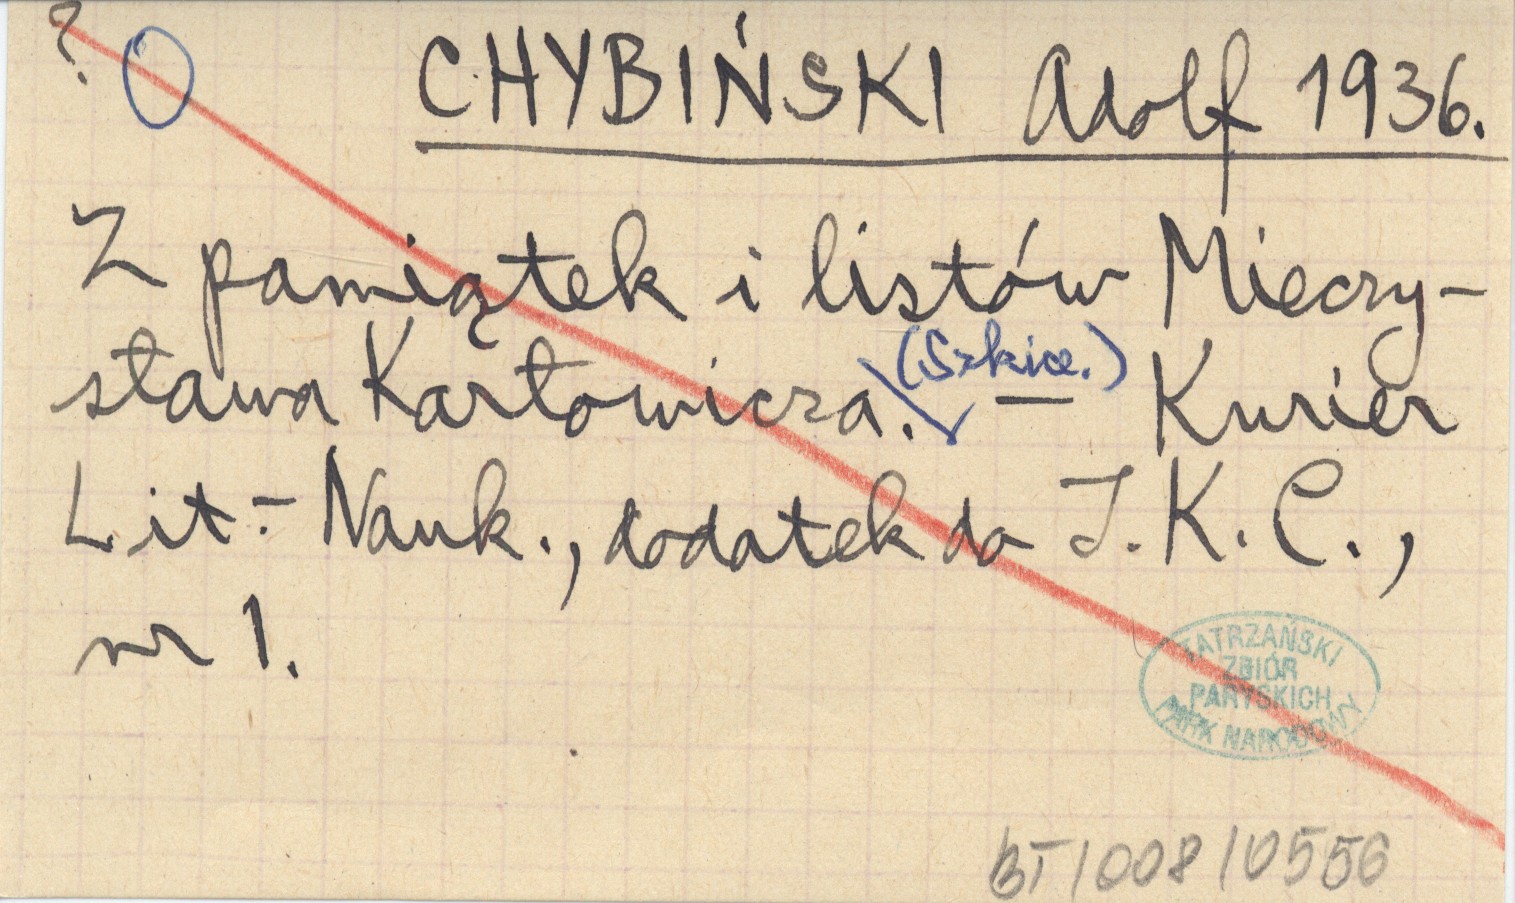 ?
CHYBIŃSKI Adolf 1936.
Z pamiątek i listów Mieczy-
sława Karłowicza. (Szkice.) — Kurier
Lit.- Nauk., dodatek do I.K.C.,
nr 1.
TATRZAŃSKI
ZBIÓR
PARYSKICH
PARK NARODOWY
BT/008/0556